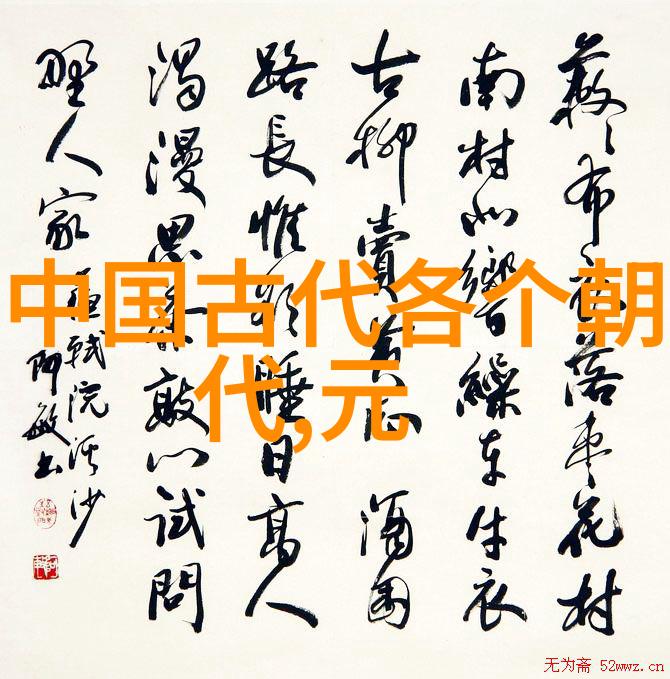 中国古代各个朝
代,元
蔌々布衣落枣花村
南村北響繰车牛衣
古柳賣黄瓜 酒困
路長惟欲睡日高人
渴漫思茶敲门试问
野人家
轼浣溪沙
阿敏书
无为斋 52wwz.cn